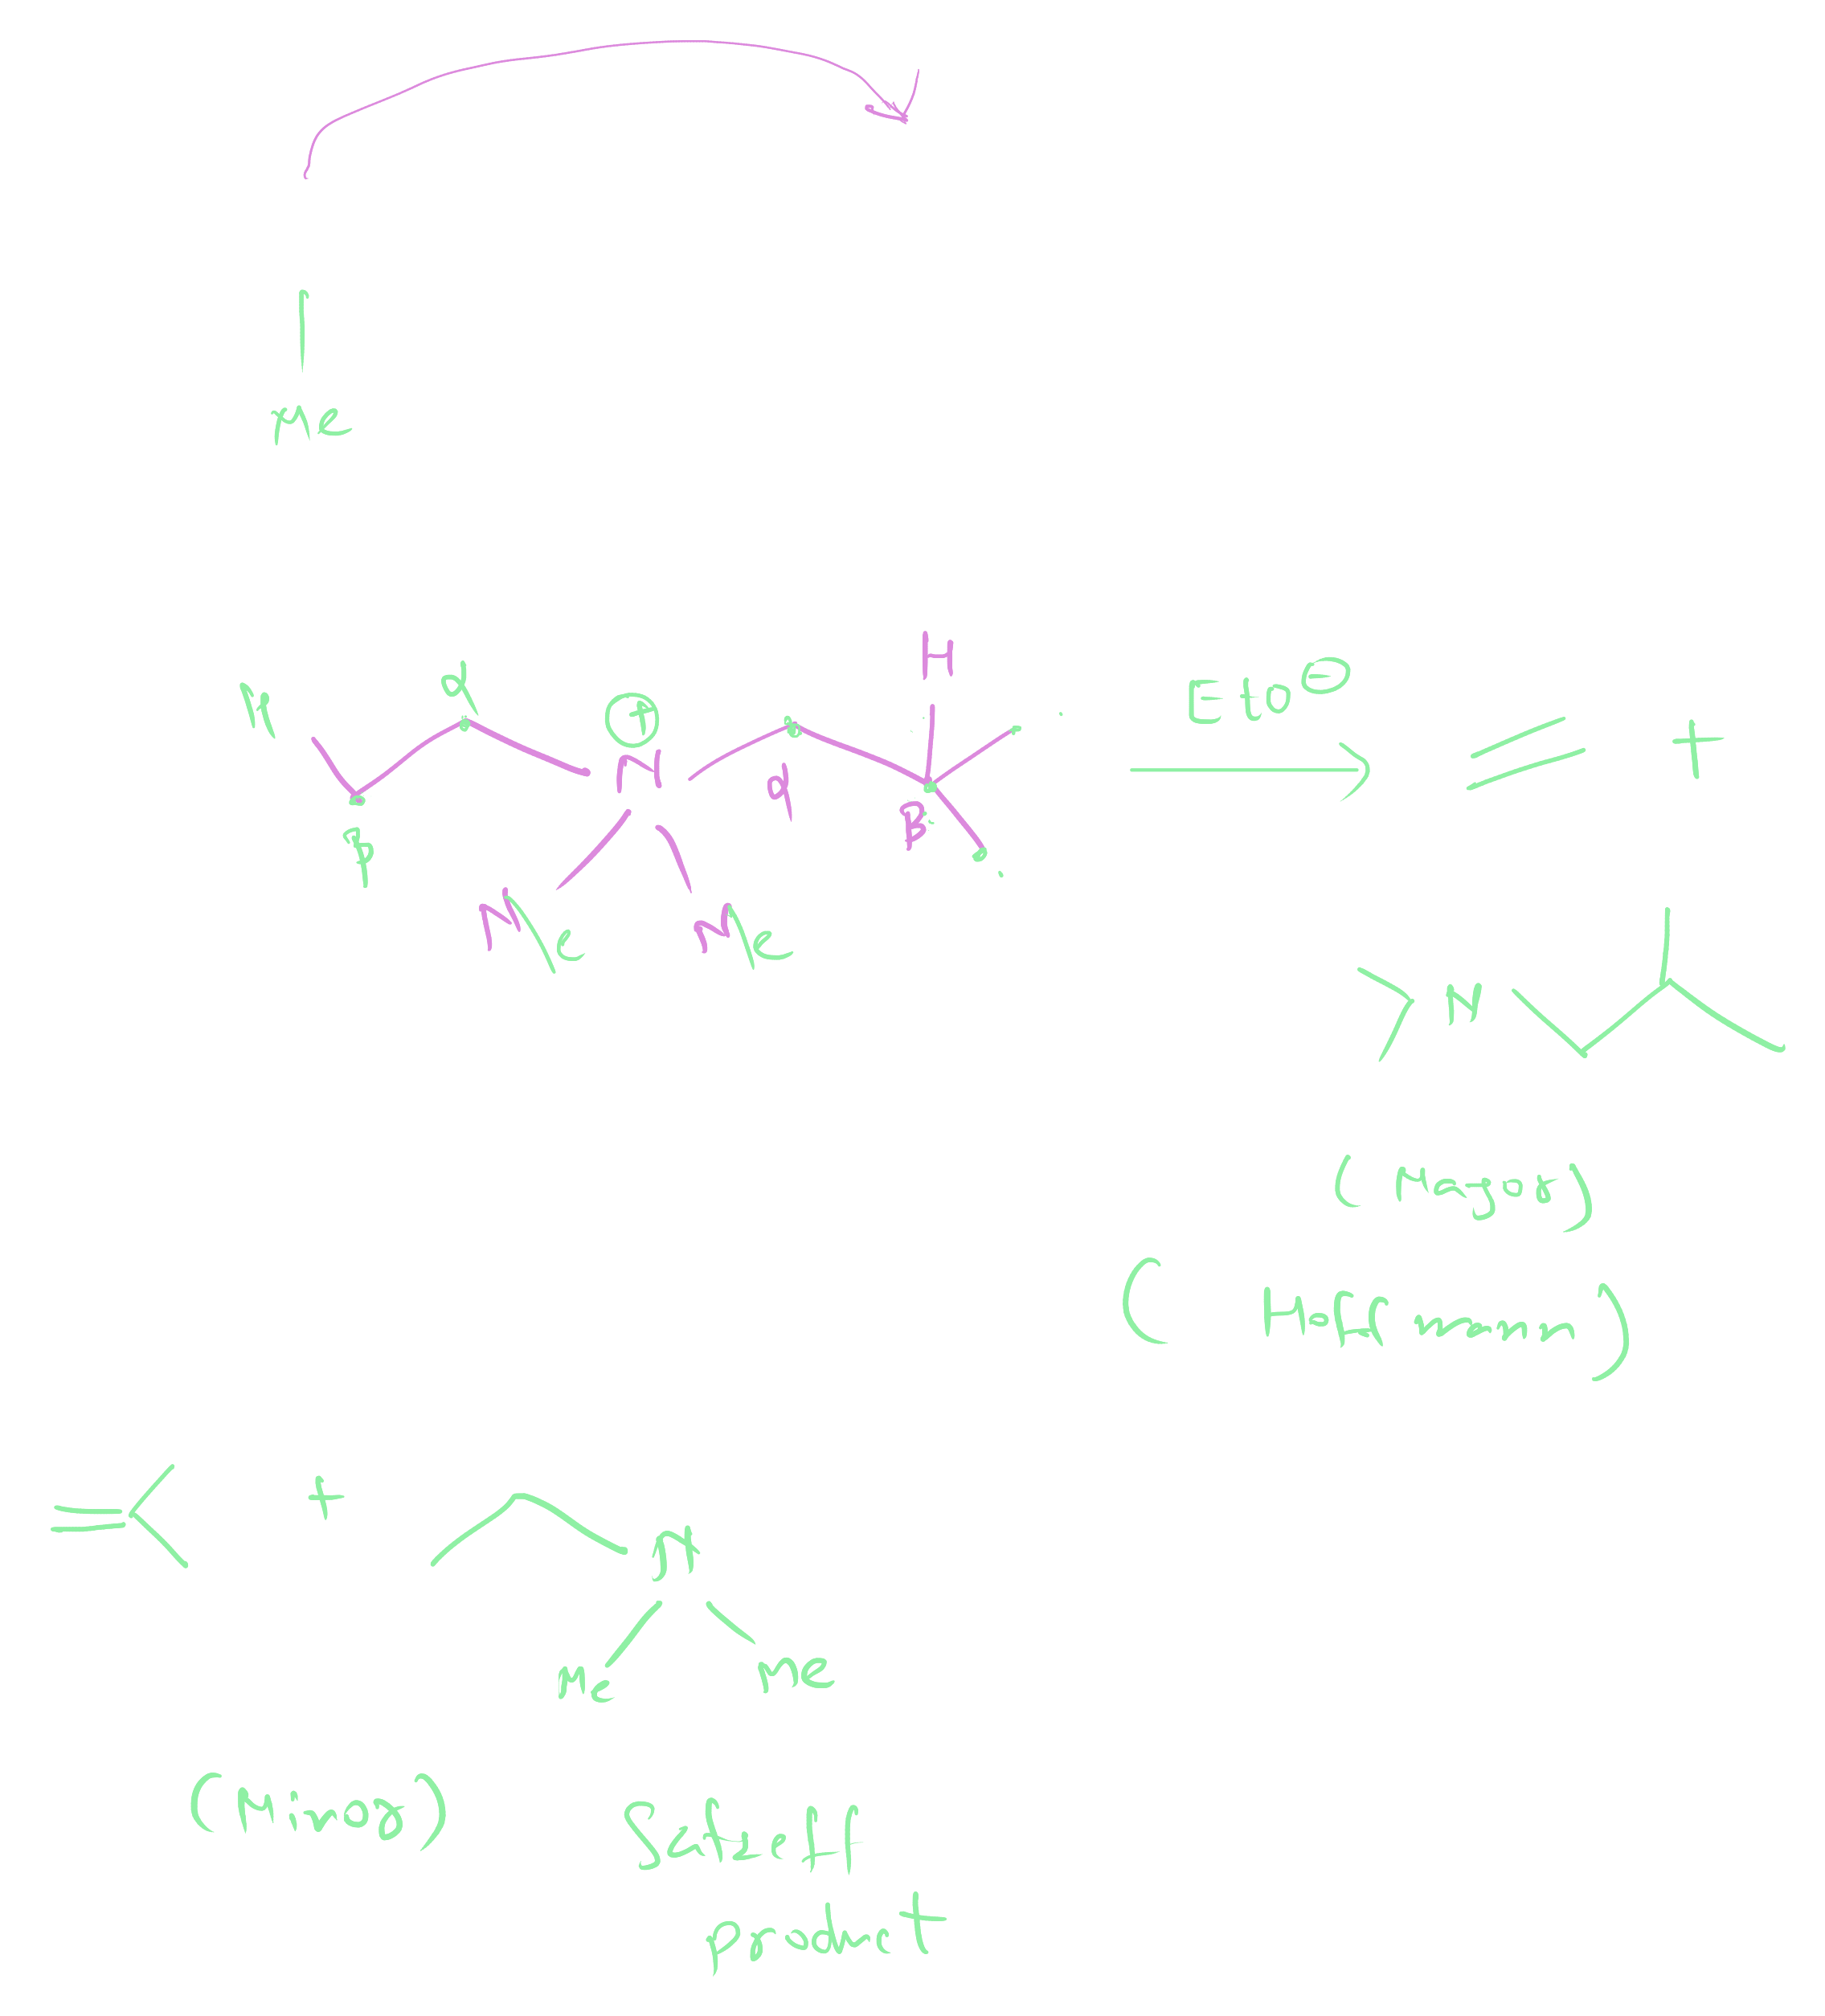 Me
H
Et O ⊖
H α ⊕
N α
β β
Me Me
+
N
(Major)
(Hoffmann)
+ N
Me Me
(Minor) Satzeff
product